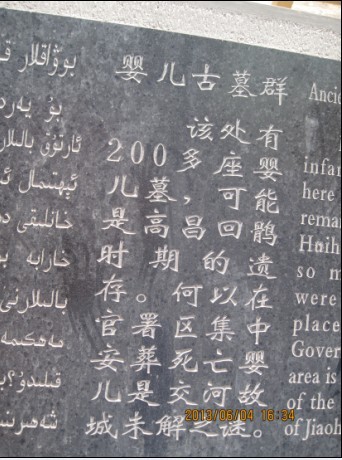 بوۋاقلار
بۇ
ئارتۇق
ئېھتىمال
خانلىقى
خارابە
بالىلارنى
مەھكىمە
婴儿古墓群
该处有
200多座婴
儿墓，可能
是高昌回鹘
时期的遗
存。何以在
官署区集中
安葬死亡婴
儿是交河故
城未解之谜。
Ancie
infan
here
rema
Huih
so m
were
place
Gover
area is
of the
of Jiaoh
2013/06/04 16:34